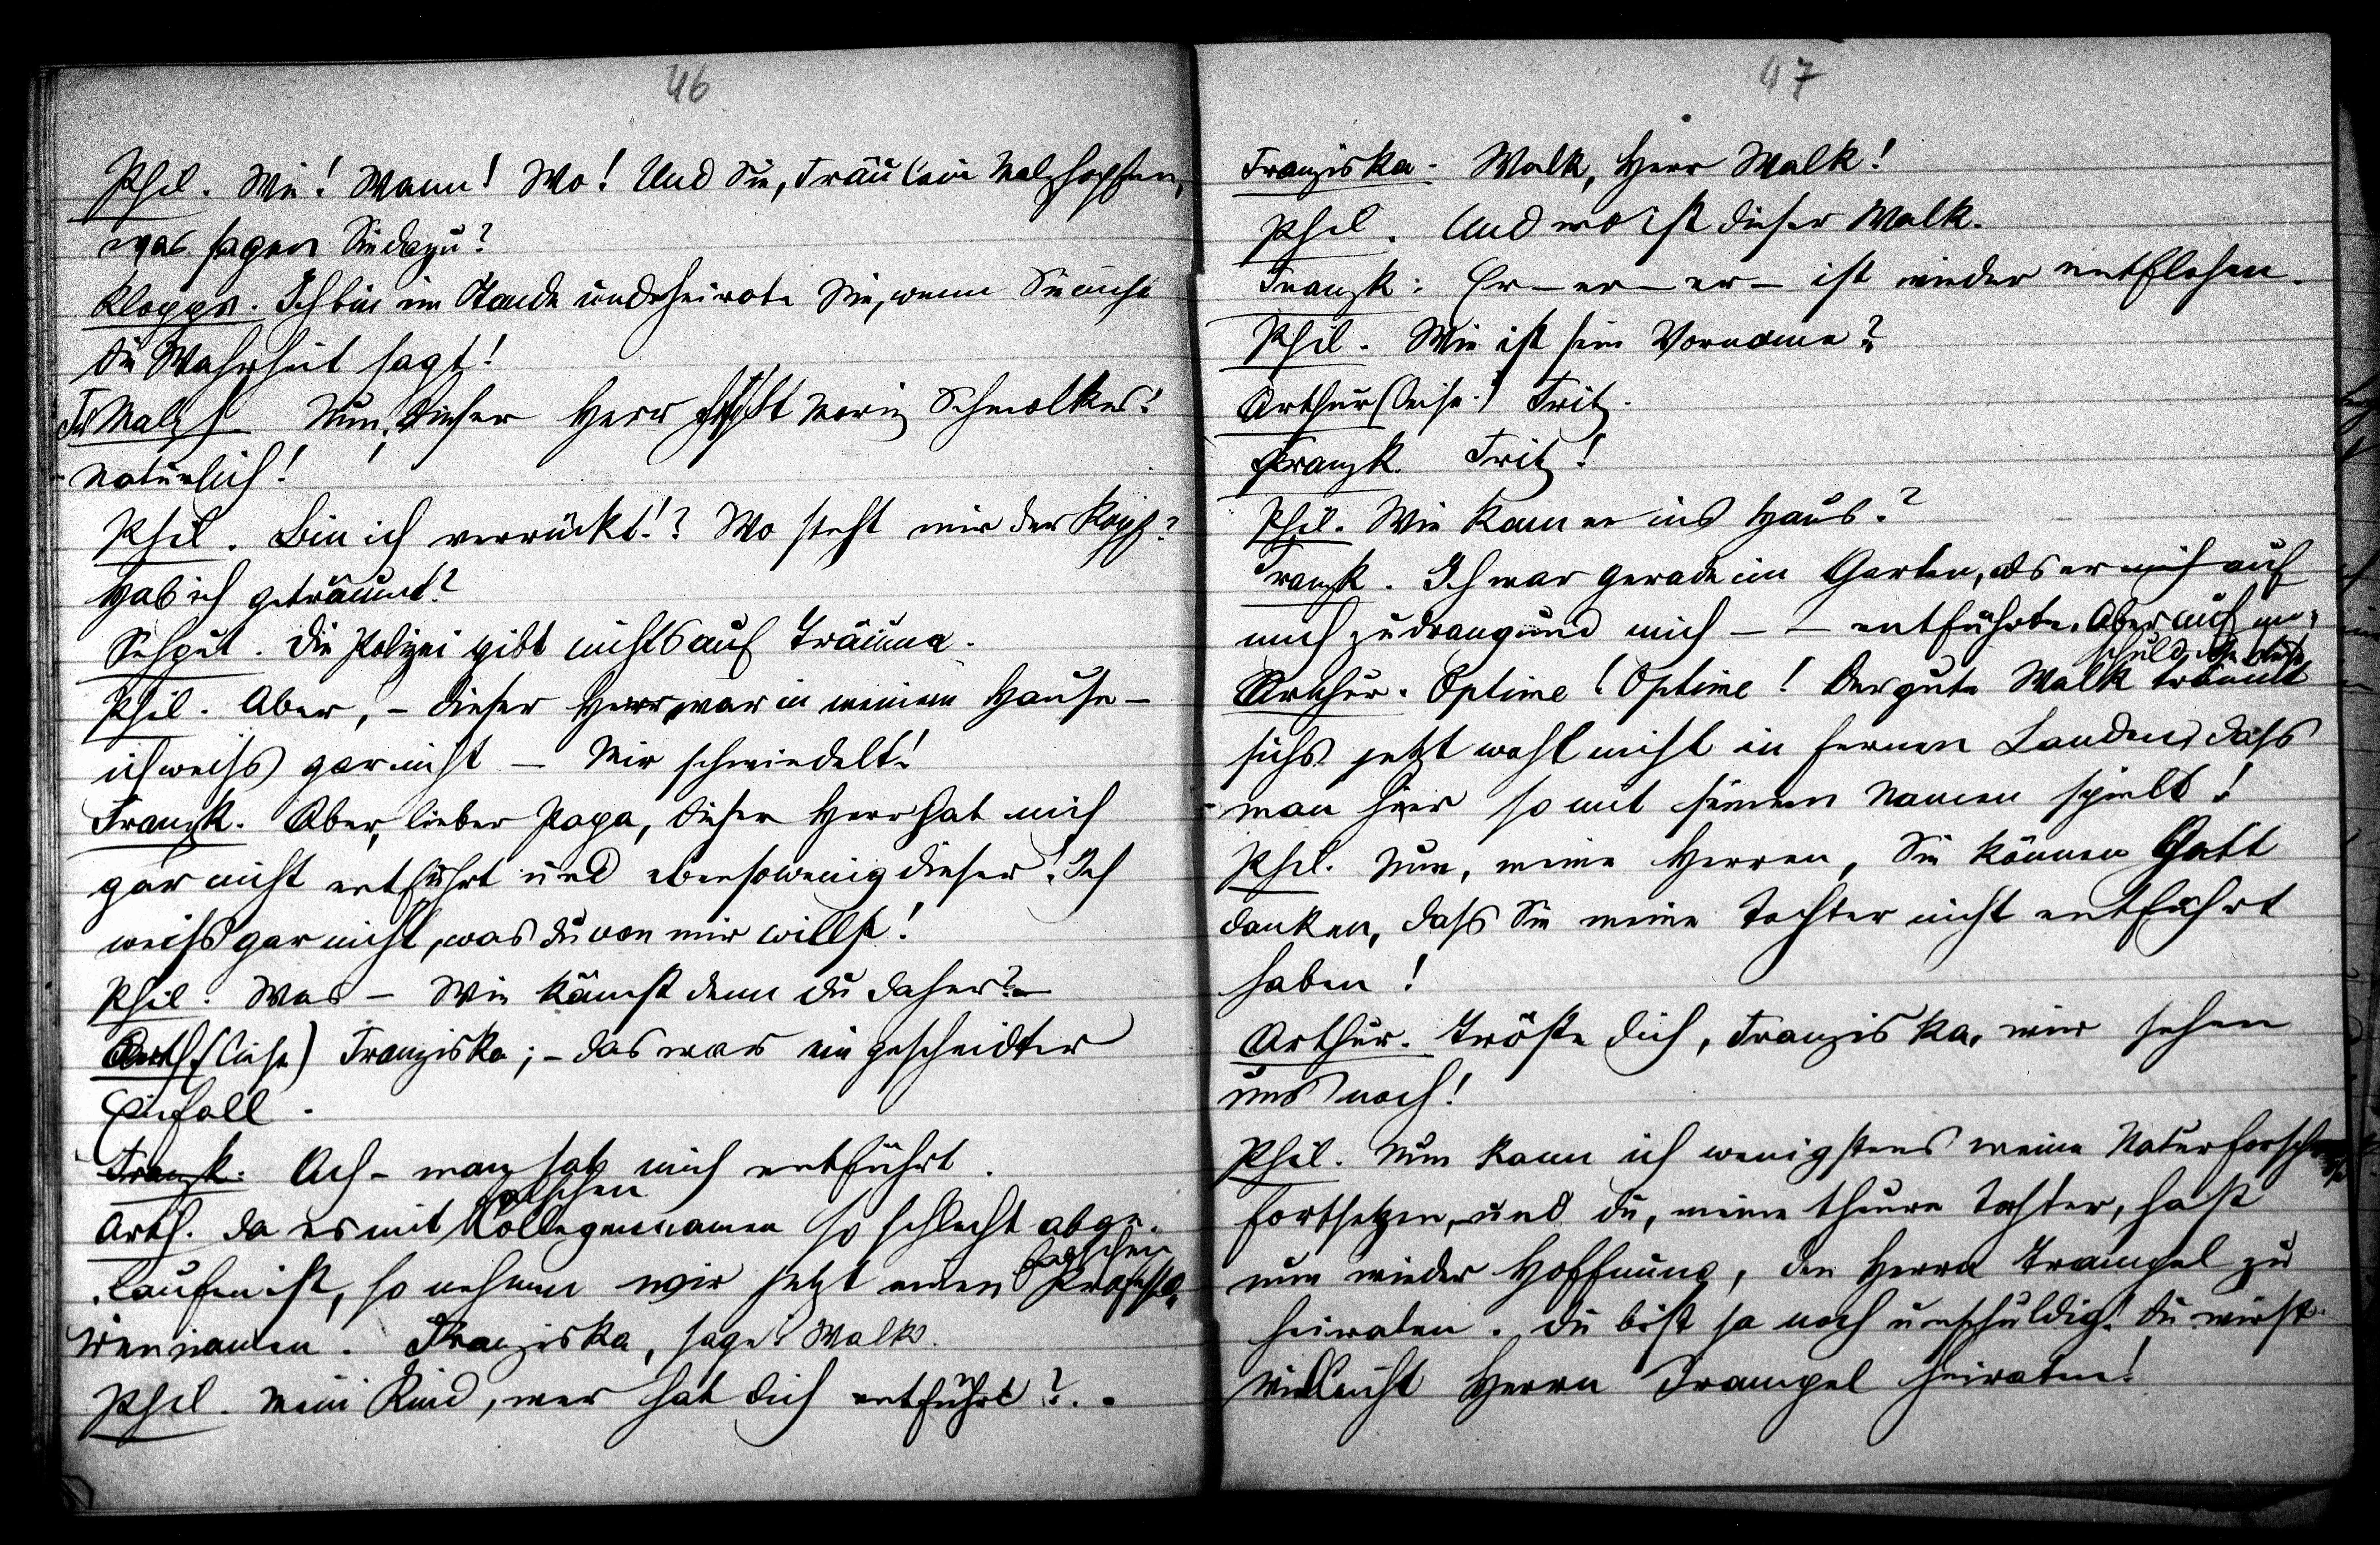 46
Phil. Wie! Wann! Wo! Und Sie, Fräulein Malzhopfen,
was sagen Sie dazu?
Kloppr. Ich bin im Stande und heirate Sie, wenn Sie nicht
die Wahrheit sagt!
Fr Malzh. Nun, dieser Herr heißt Moriz Schmolkes!
natürlich!
Phil. Bin ich verrückt!? Wo steht mir der Kopf?
Hab ich geträumt?
Schput. Die Polizei gibt nichts auf Träume.
Phil. Aber, – dieser Herr war in meinem Hause –
ich weiß gar nicht – Mir schwindelt!
Franzk. Aber, lieber Papa, dieser Herr hat mich
gar nicht entführt und ebensowenig dieser! Ich
weiß gar nicht, was du von mir willst!
Phil. Was – Wie kämst denn du daher? –
Arth (leise) Franziska; – das war ein gescheidter
Einfall.
Franzk. Ach – man hat mich entführt.
falschen
Arth. da es mit Kollegennamen so schlecht abge-
falschen
laufen ist, so nehmen wir jetzt einen Professo-
rennamen. Franziska, sage: Walk.
Phil. Mein Kind, wer hat dich entführt?..
47
Franziska. Walk, Herr Walk!
Phil. Und wo ist dieser Walk.
Franzk: Er – er – er – ist wieder entflohen.
Phil. Wie ist sein Vorname?
Arthur (leise.) Fritz.
Franzk. Fritz!
Phil. Wie kam er ins Haus?
Franzk. Ich war gerade im Garten, als er sich auf
mich zudrang und mich – – entführte. Aber auf un-
schuldige
Arthur. Optime! Optime! Der gute Walk träumt
sichs jetzt wohl nicht in fernen Landen, daß
man hier so mit seinem Namen spielt!
Phil. Nun, meine Herren, Sie können Gott
danken, daß Sie meine Tochter nicht entführt
haben!
Arthur. Tröste dich, Franziska, wir sehen
uns noch!
Phil. Nun kann ich wenigstens meine Naturforsch
fortsetzen, und du, meine theure Tochter, hast
nun wieder Hoffnung, den Herrn Trampel zu
heiraten. du bist ja noch unschuldig! du wirst
vielleicht Herrn Trampel heiraten!